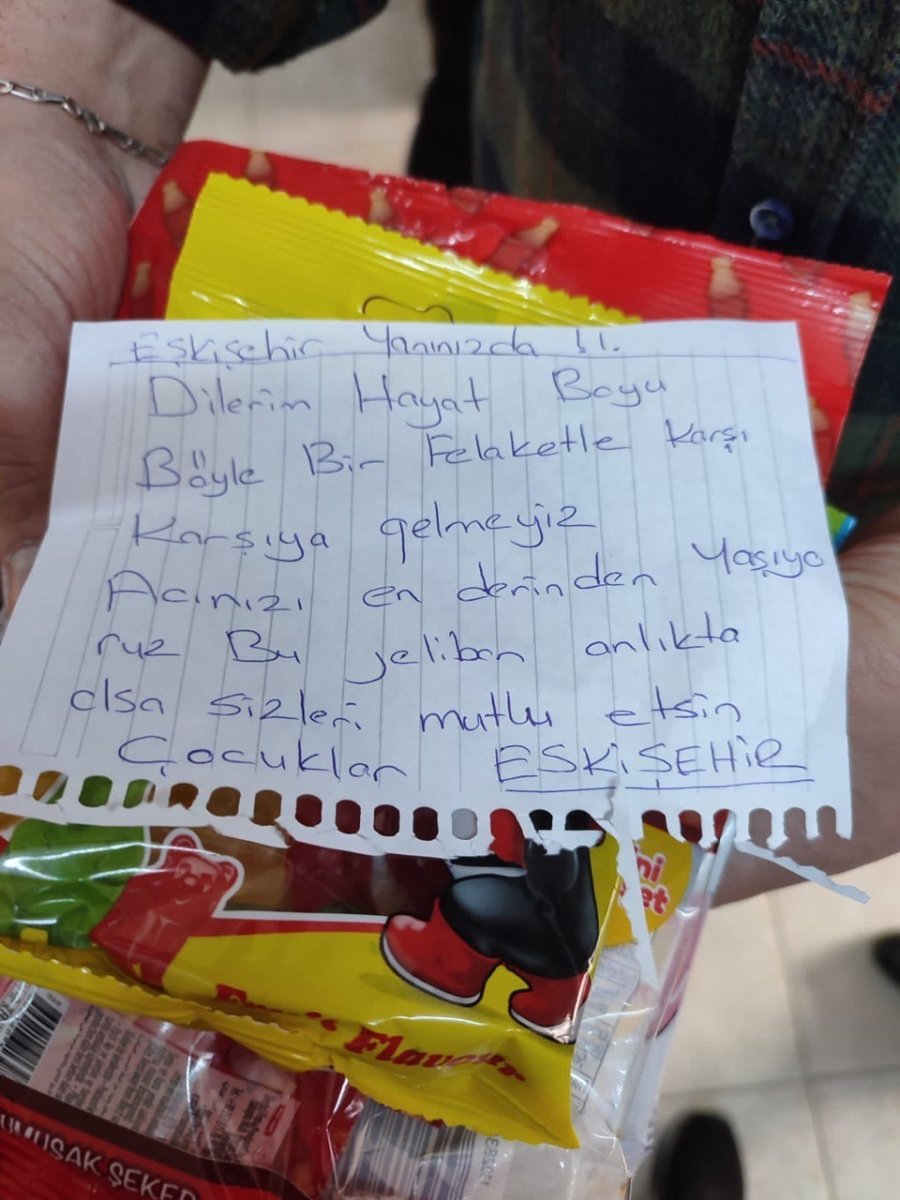 Eskişehir Yanınızda !!.
Dilerim Hayat Boyu
Böyle Bir Felaketle Karşı
Karşıya gelmeyiz
Acınızı en derinden Yaşıyo
ruz Bu jelibon anlıkta
olsa sizleri mutlu etsin
Çocuklar ESKİŞEHİR
Flavour
UMUŞAK ŞEKER